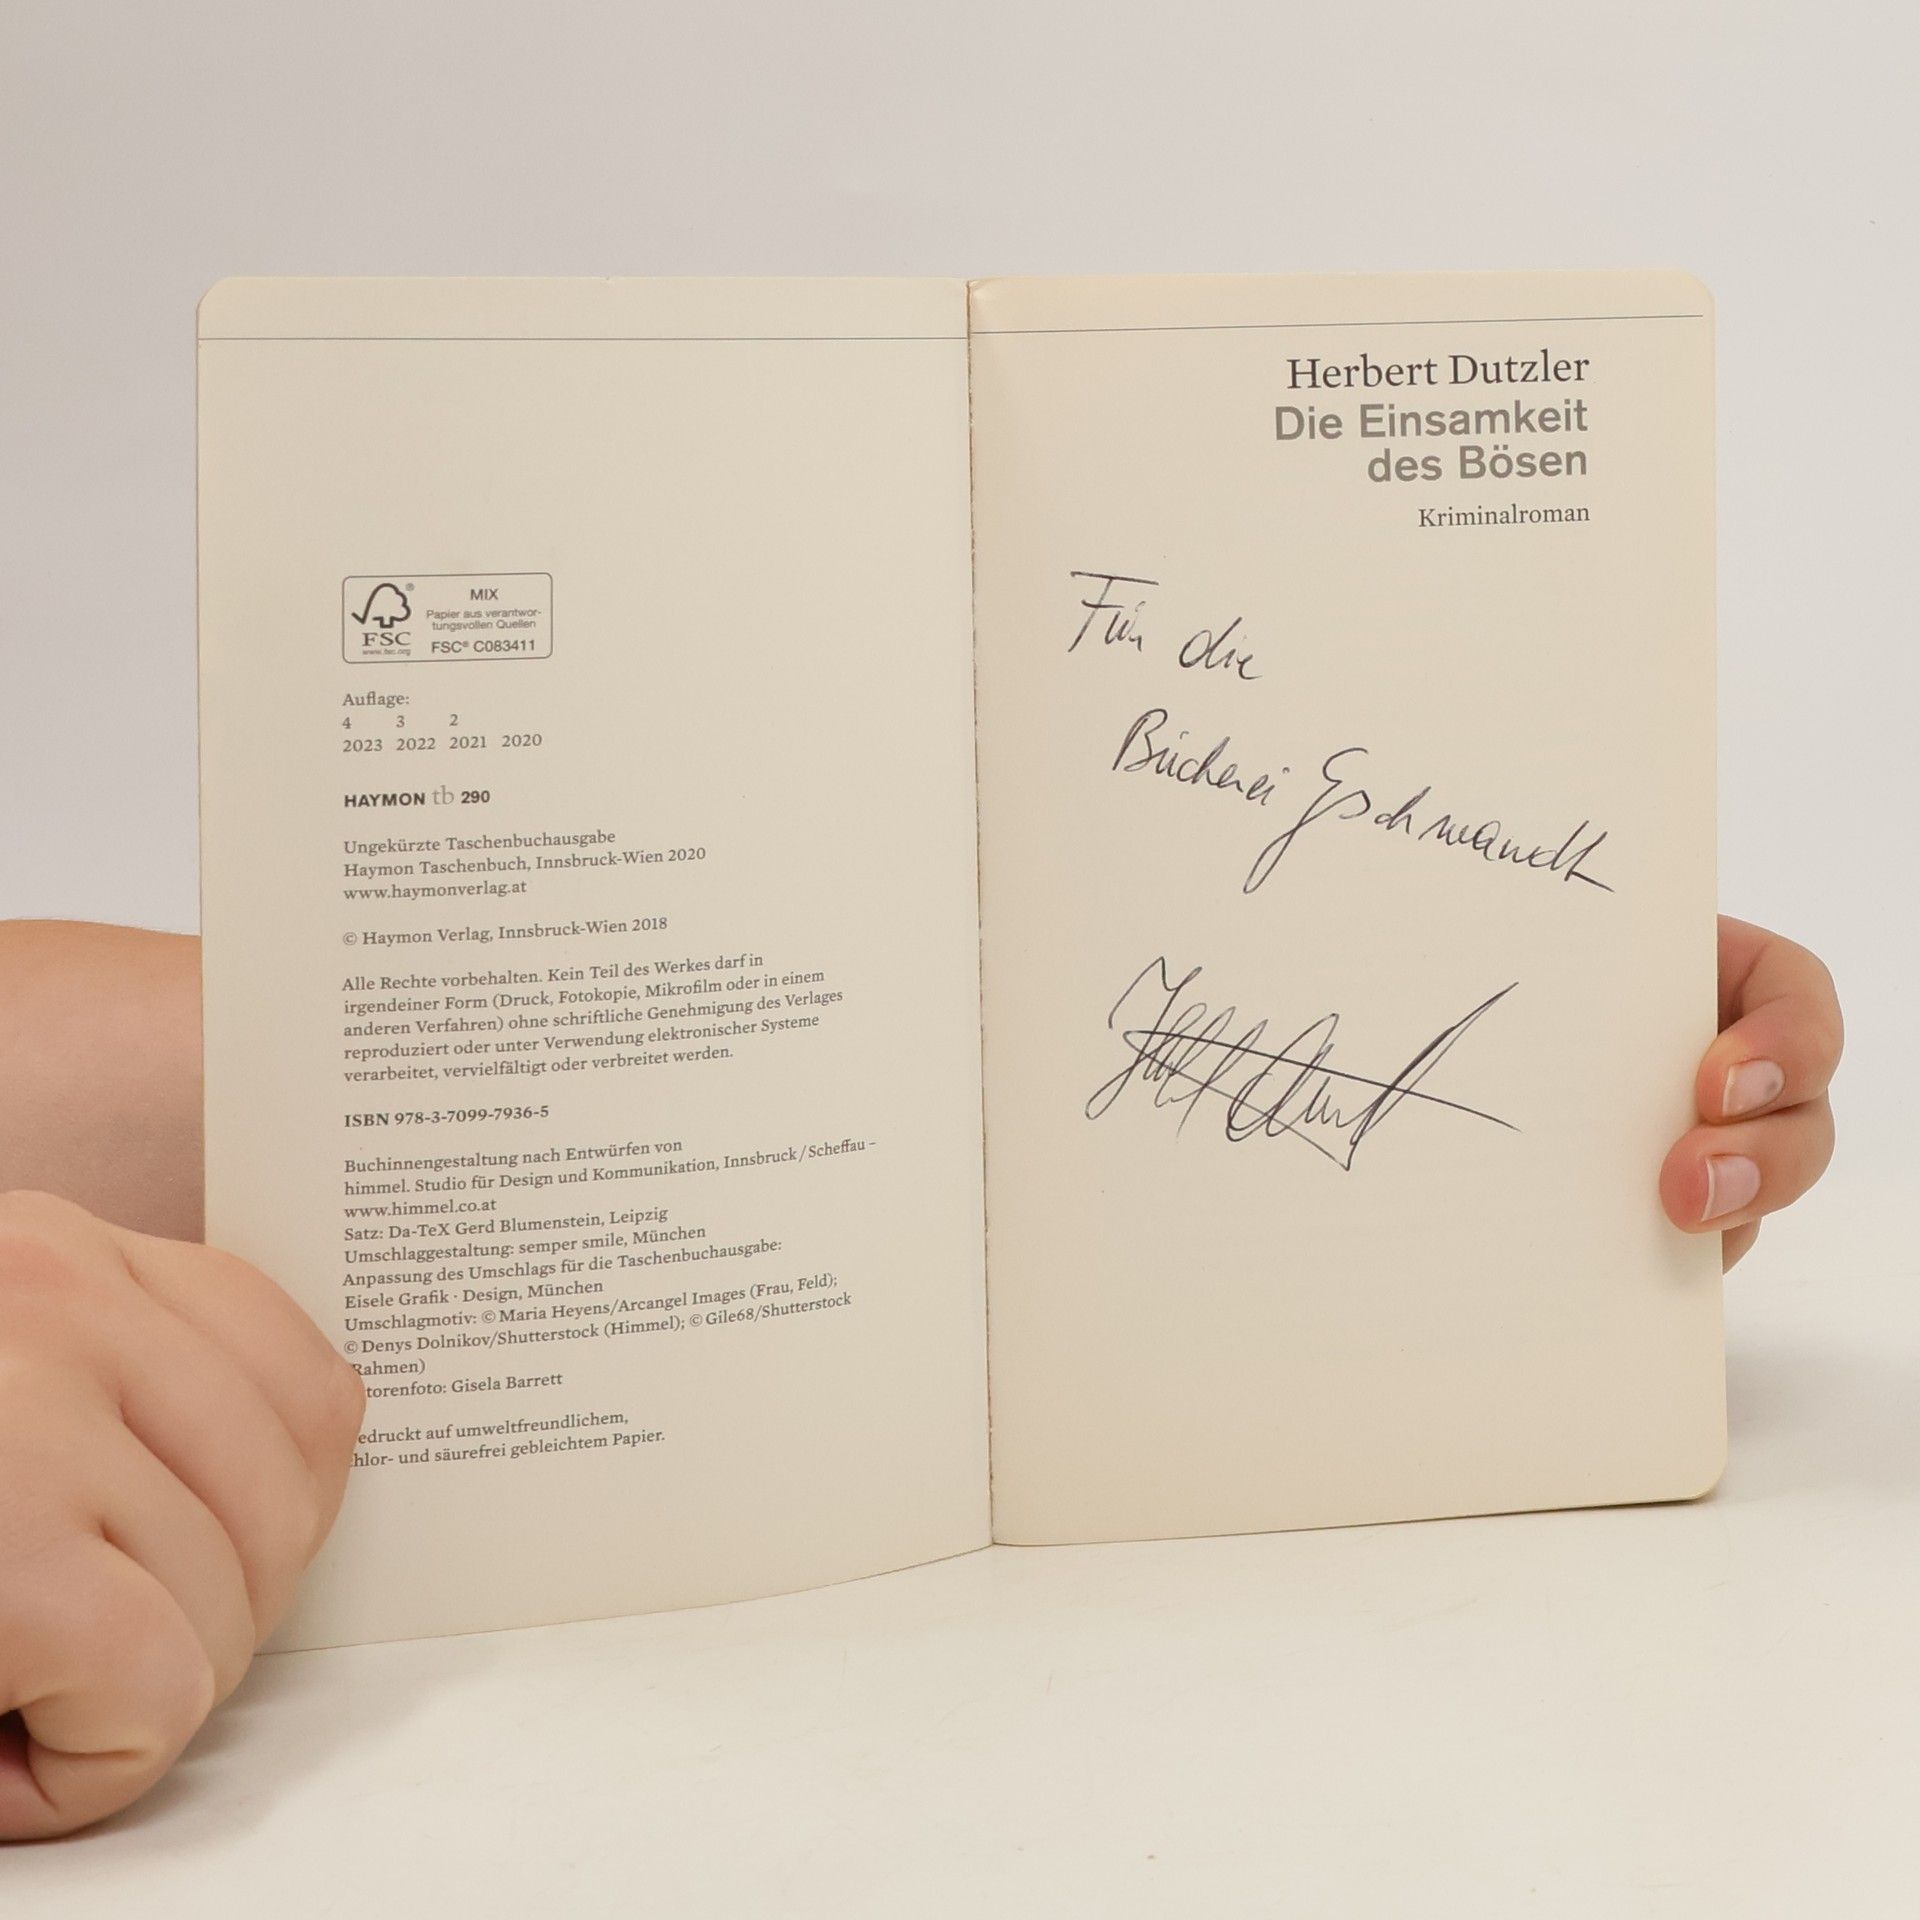 MIX
Papier aus verantwor-
tungsvollen Quellen
FSC® C083411
FSC
www.fsc.org
Auflage:
4 3 2
2023 2022 2021 2020
HAYMON tb 290
Ungekürzte Taschenbuchausgabe
Haymon Taschenbuch, Innsbruck-Wien 2020
www.haymonverlag.at
© Haymon Verlag, Innsbruck-Wien 2018
Alle Rechte vorbehalten. Kein Teil des Werkes darf in
irgendeiner Form (Druck, Fotokopie, Mikrofilm oder in einem
anderen Verfahren) ohne schriftliche Genehmigung des Verlages
reproduziert oder unter Verwendung elektronischer Systeme
verarbeitet, vervielfältigt oder verbreitet werden.
ISBN 978-3-7099-7936-5
Buchinnengestaltung nach Entwürfen von
himmel. Studio für Design und Kommunikation, Innsbruck/Scheffau –
www.himmel.co.at
Satz: Da-TeX Gerd Blumenstein, Leipzig
Umschlaggestaltung: semper smile, München
Anpassung des Umschlags für die Taschenbuchausgabe:
Eisele Grafik · Design, München
Umschlagmotiv: © Maria Heyens/Arcangel Images (Frau, Feld);
© Denys Dolnikov/Shutterstock (Himmel); © Gile68/Shutterstock
Rahmen)
torenfoto: Gisela Barrett
edruckt auf umweltfreundlichem,
hlor- und säurefrei gebleichtem Papier.
Herbert Dutzler
Die Einsamkeit
des Bösen
Kriminalroman
Für die
Bücherei Gschwandt